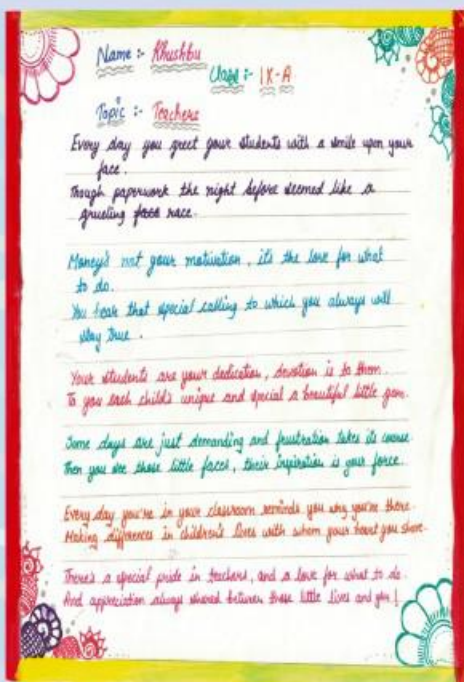 Name :- Khushbu
Class :- IX-A
Topic :- Teachers
Every day you greet your students with a smile upon your
face.
Though paperwork the night before seemed like a
grueling foot race.
Money's not your motivation, it's the love for what
to do.
You hear that special calling to which you always will
stay true.
Your students are your dedication, devotion is to them.
To you each child's unique and special a beautiful little gem.
Some days are just demanding and frustration takes its course
Then you see those little faces, their inspiration is your force.
Every day you're in your classroom reminds you why you're there.
Making differences in children's lives with whom your heart you share.
There's a special pride in teachers, and a love for what to do.
And appreciation always shared between those little lives and you!